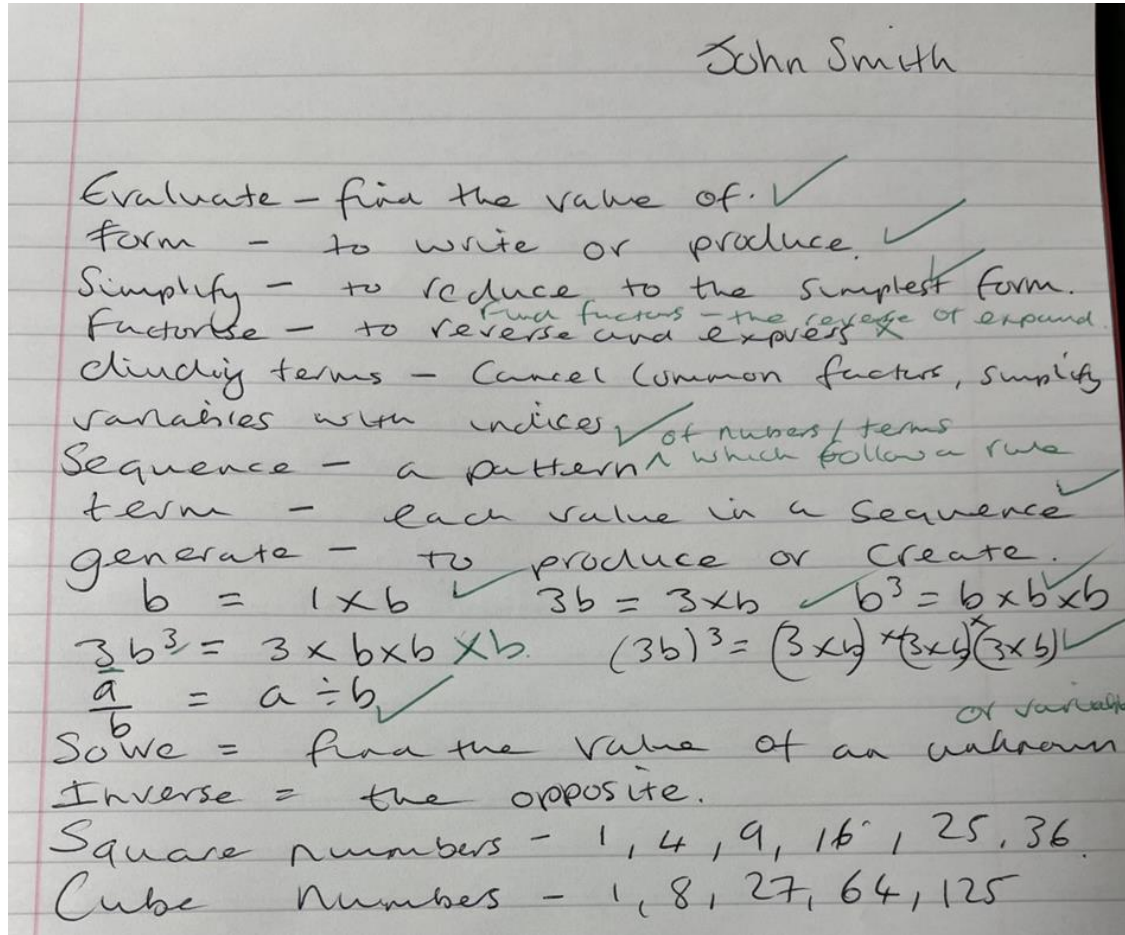 John Smith
Evaluate - find the value of. ✓
form - to write or produce. ✓
Simplify - to reduce to the simplest form. ✓
find factors - the reverse of expand.
Factorise - to reverse and express x
dividing terms - Cancel common factors, simplify
variables with indices ✓ of nubers / terms
Sequence - a pattern ^ which follow a rule
term - each value in a sequence ✓
generate - to produce or create.
b = 1 × b ✓ 3b = 3×b ✓ b³ = b × b × b ✓
3b³ = 3 × b×b ×b. (3b)³ = (3×b) × (3×b) × (3×b) ✓
a/b = a ÷ b ✓
or variable
Solve = find the value of an unknown
Inverse = the opposite.
Square numbers - 1, 4, 9, 16, 25, 36.
Cube Numbers - 1, 8, 27, 64, 125